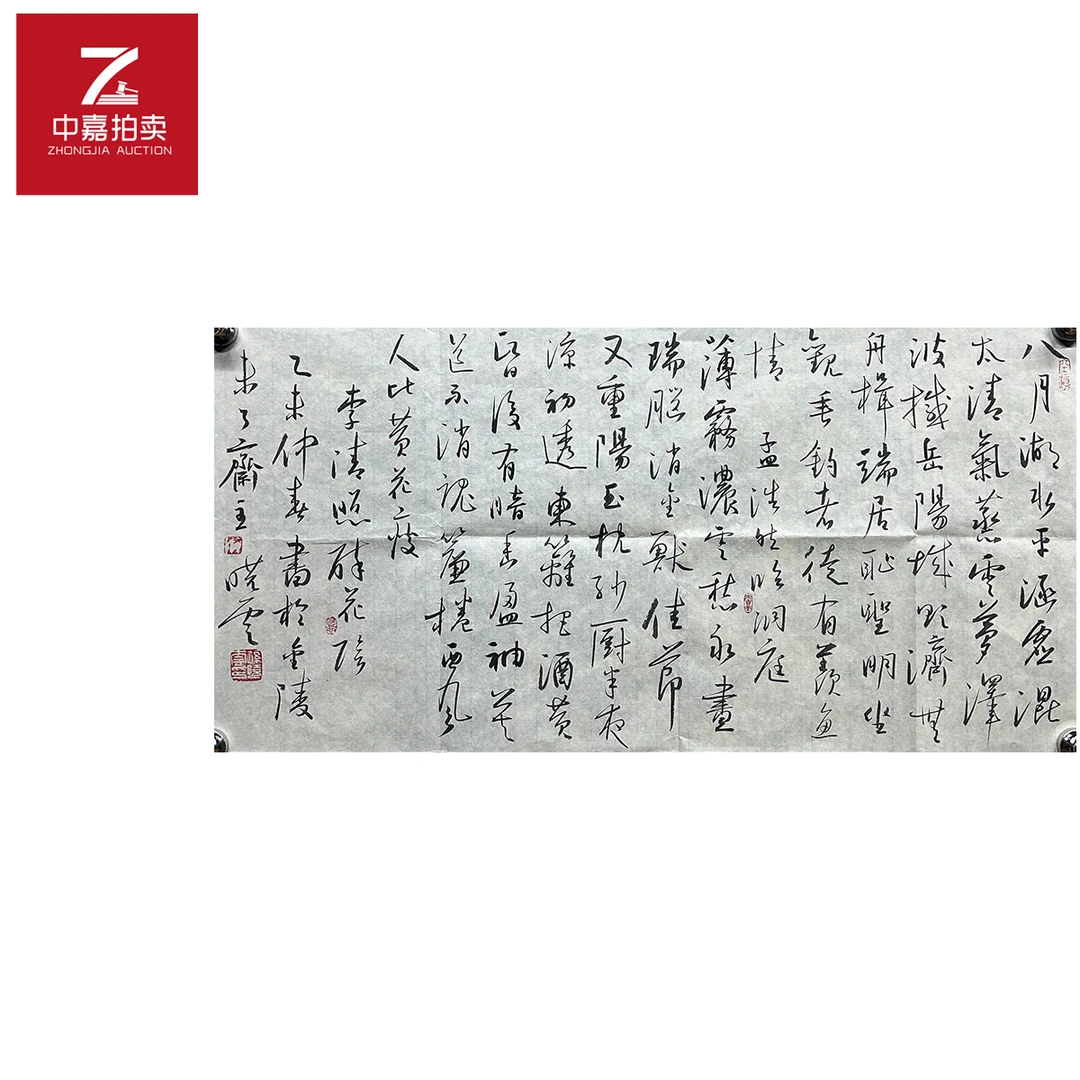 中嘉拍卖
ZHONGJIA AUCTION
八月湖水平涵虚混
太清氣蒸雲夢澤
波撼岳陽城欲濟無
舟楫端居恥聖明坐
觀垂釣者徒有羨魚
情 孟浩然臨洞庭
薄霧濃雲愁永晝
瑞腦消金獸佳節
又重陽玉枕紗厨半夜
涼初透東籬把酒黄
昏後有暗香盈袖莫
道不消魂簾捲西風
人比黄花瘦
李清照醉花陰
乙未仲春書於金陵
未了齋主